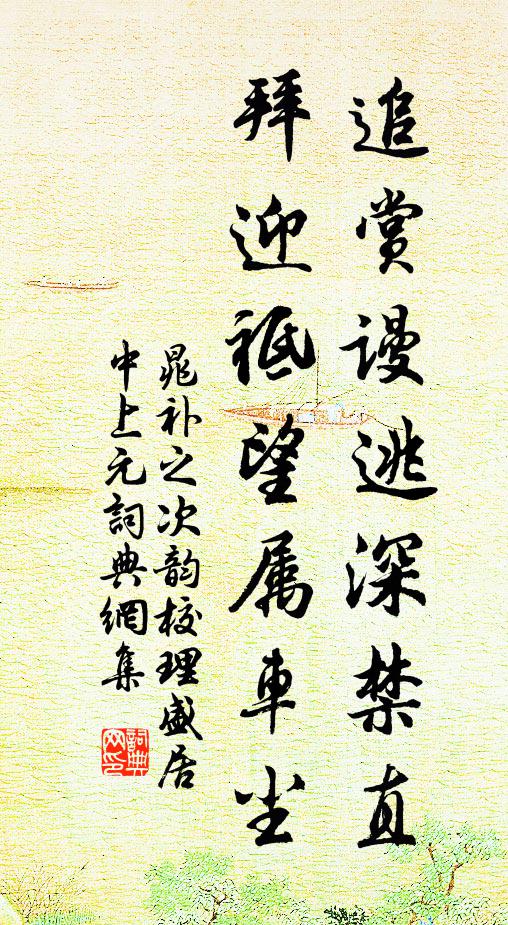 追赏谩逃深禁直
拜迎祗望属车尘
晁补之次韵校理盛居
中上元詞典網集
詞典网印